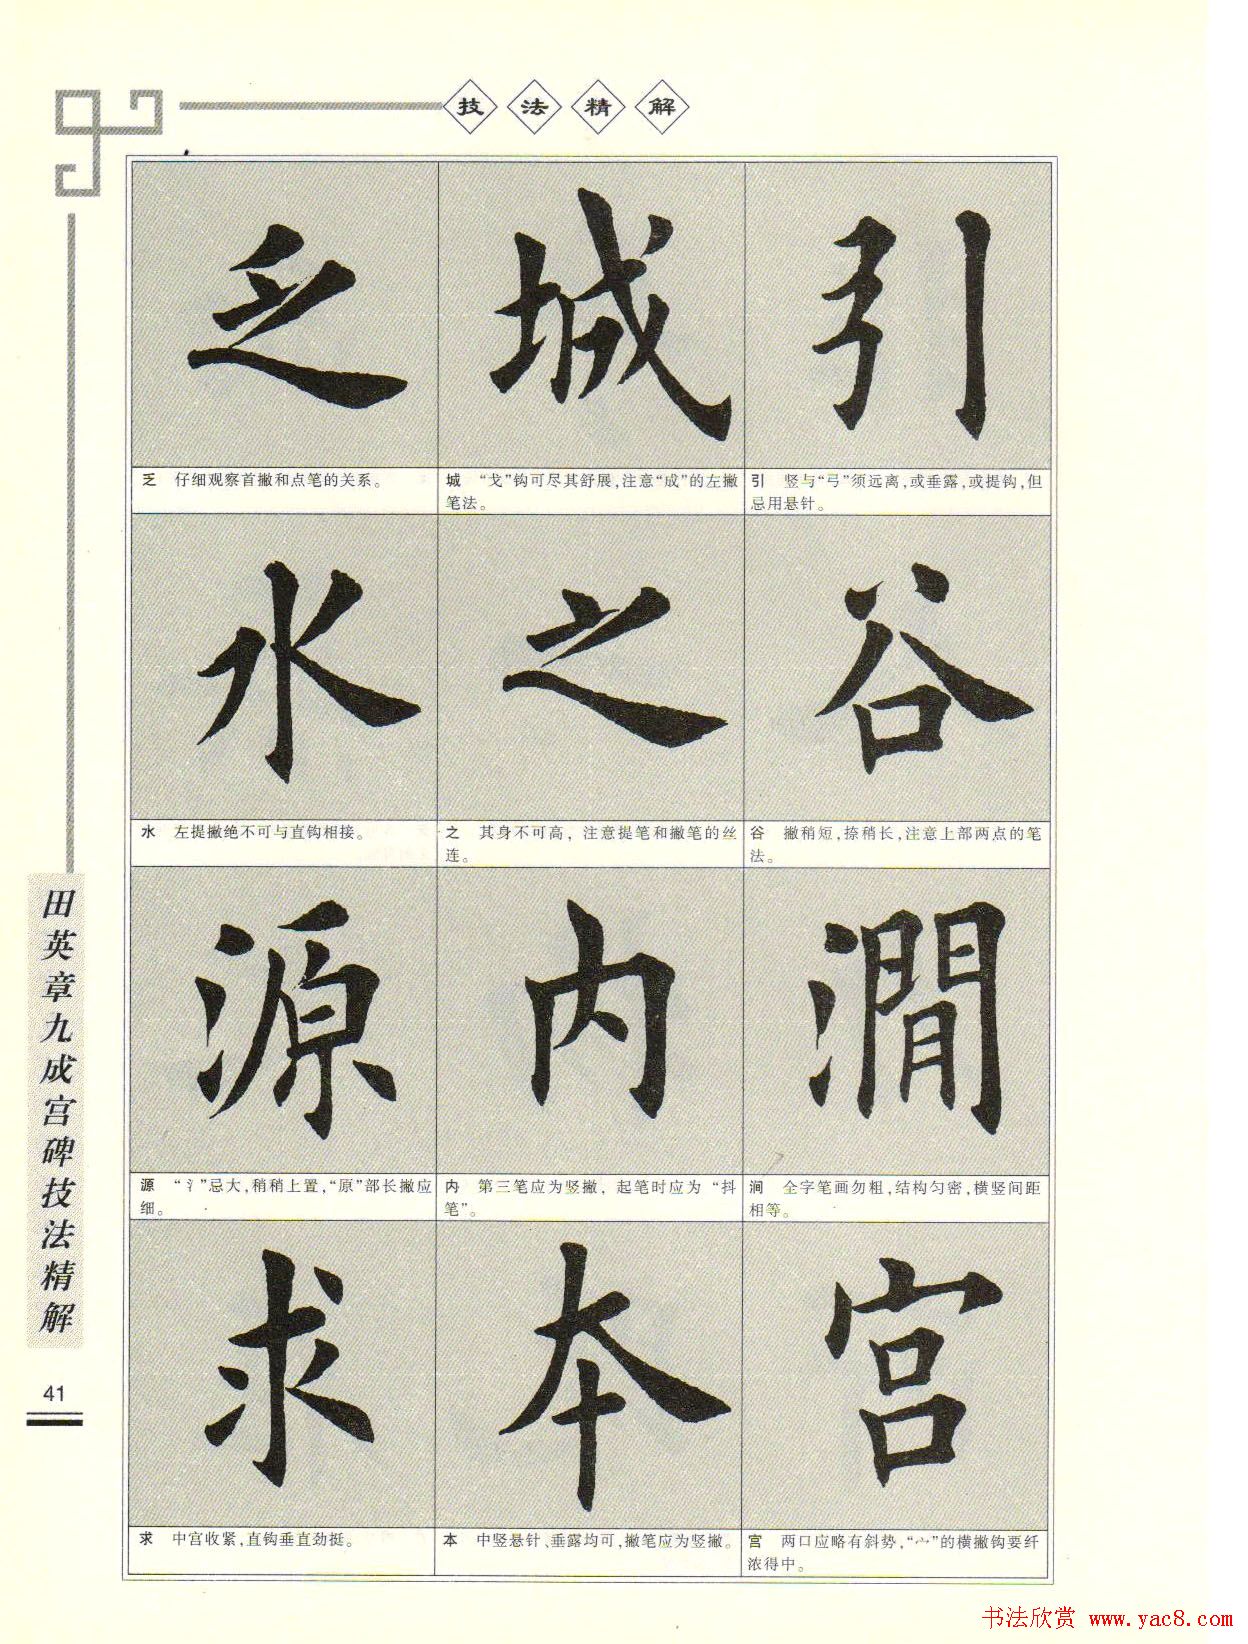 技法精解
引 城 乏
引 竖与“弓”须远离,或垂露,或提钩,但
忌用悬针。
城 “戈”钩可尽其舒展,注意“成”的左撇
笔法。
乏 仔细观察首撇和点笔的关系。
谷 之 水
谷 撇稍短,捺稍长,注意上部两点的笔
法。
之 其身不可高，注意提笔和撇笔的丝
连。
水 左提撇绝不可与直钩相接。
澗 内 源
涧 全字笔画勿粗,结构匀密,横竖间距
相等。
内 第三笔应为竖撇，起笔时应为“抖
笔”。
源 “氵”忌大,稍稍上置,“原”部长撇应
细。
宫 本 求
宫 两口应略有斜势,“宀”的横撇钩要纤
浓得中。
本 中竖悬针、垂露均可,撇笔应为竖撇。
求 中宫收紧,直钩垂直劲挺。
田英章九成宫碑技法精解
41
书法欣赏 www.yac8.com